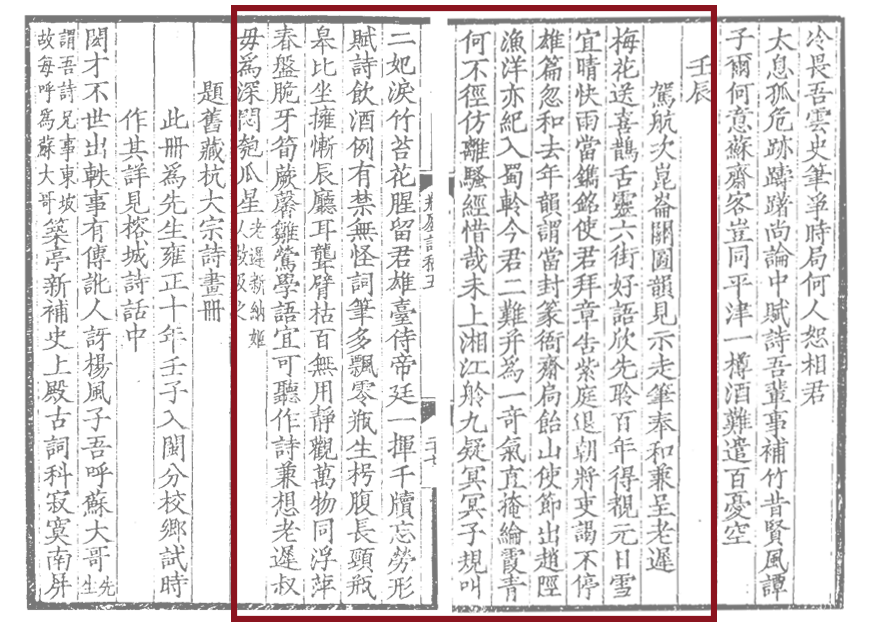 冷畏吾雲史筆爭時局何人恕相君
太息孤危跡躊躇尚論中賦詩吾輩事補竹昔賢風譚
子爾何意蘇齋客豈同平津一樽酒難遣百憂空
壬辰
駕航次崑崙關圖韻見示走筆奉和兼呈老遲
梅花送喜鵲舌靈六街好語欣先聆百年得覩元日雪
宜晴快雨當鐫銘使君拜章告紫庭退朝將吏謁不停
雄篇忽和去年韻謂當封篆衙齋扃飴山使節出趙陘
漁洋亦紀入蜀軨今君二難并為一奇氣直掩綸霞青
何不徑仿離騷經惜哉未上湘江舲九疑冥冥子規叫
瓶廬詩稿五
二十七
二妃淚竹苔花腥留君雄臺侍帝廷一揮千牘忘勞形
賦詩飲酒例有禁無怪詞筆多飄零瓶生枵腹長頸瓶
皋比坐擁慚辰廳耳聾臂枯百無用靜觀萬物同浮萍
春盤脆牙筍蕨馨雛鶯學語宜可聽作詩兼想老遲叔
毋為深悶匏瓜星老遲新納姬人故及之
題舊藏杭大宗詩畫冊
此冊為先生雍正十年壬子入閩分校鄉試時
作其詳見榕城詩話中
閎才不世出軼事有傳訛人訝楊風子吾呼蘇大哥先生
謂吾詩兄事東坡故每呼為蘇大哥築亭新補史上殿古詞科寂寞南屏